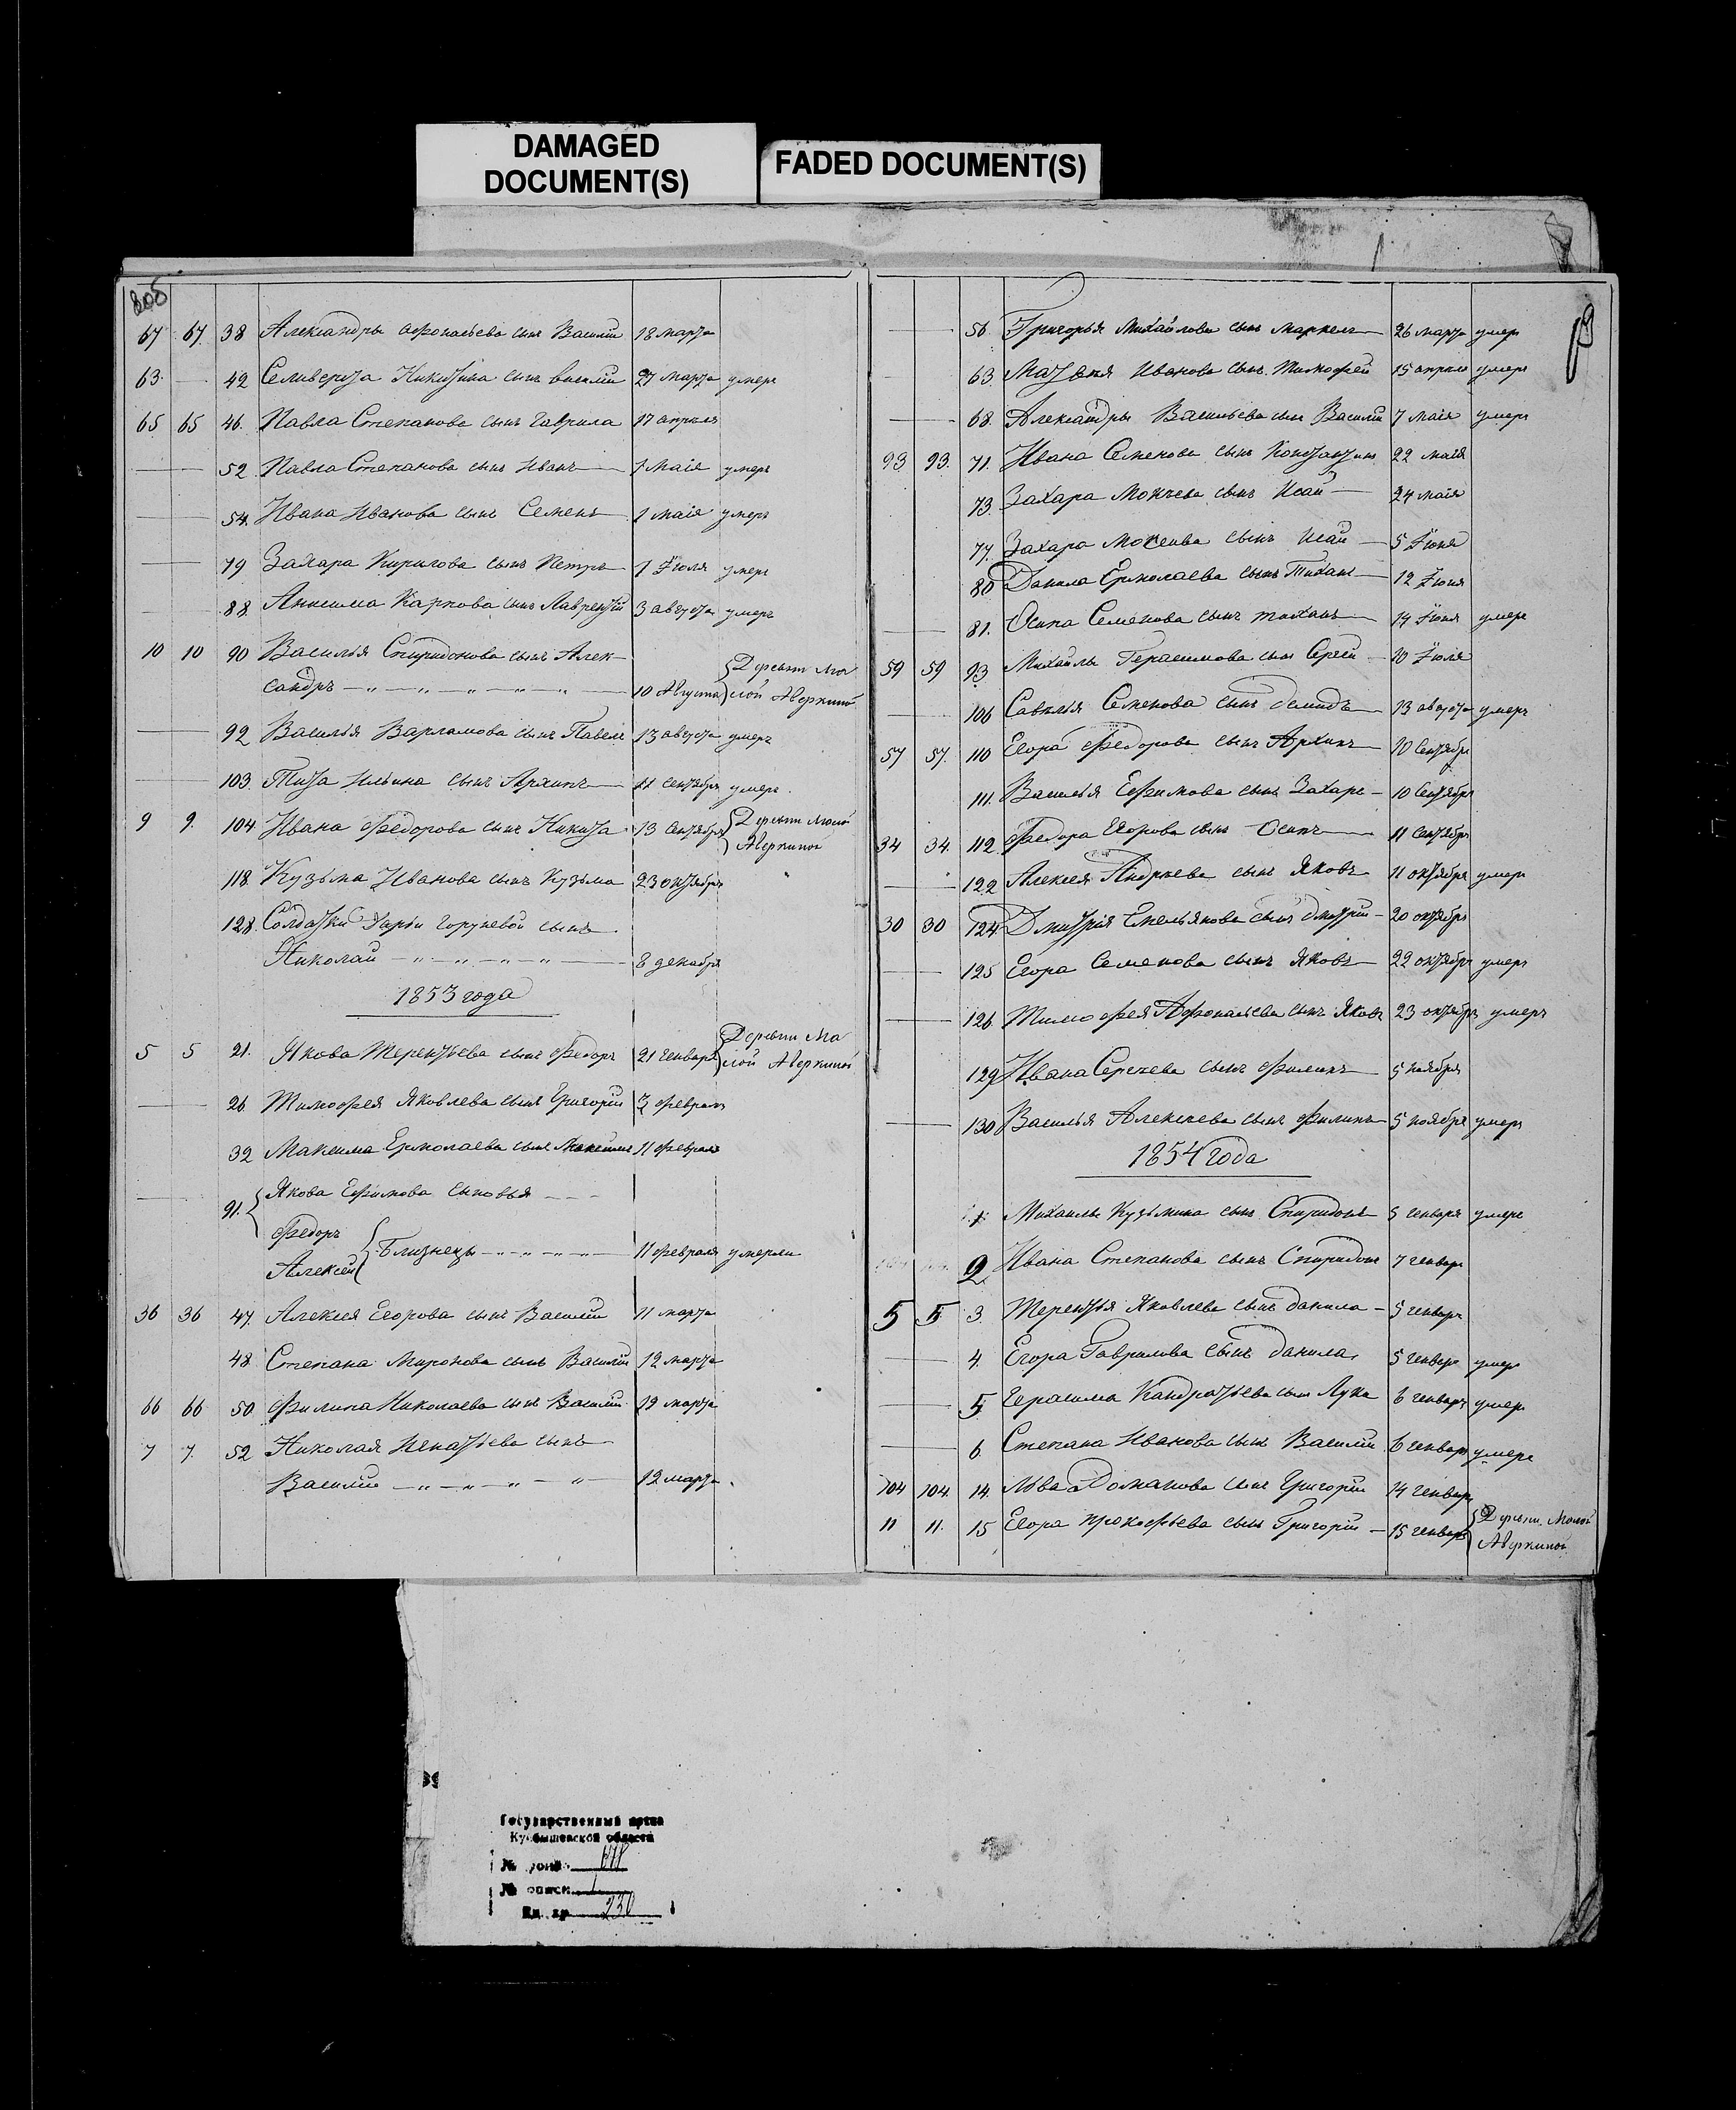 DAMAGED
DOCUMENT(S)
FADED DOCUMENT(S)
67 67. 38 Александры Афонасьева сынъ Василий 18 марта
63. — 42 Селиверста Никитина сынъ василий 27 марта умеръ
65 65 46. Павла Степанова сынъ Гаврила 17 апреля
— 52 Павла Степанова сынъ Иванъ — 1 Маія умеръ
— 54. Ивана Иванова сынъ Семенъ 1 маія умеръ
— 79 Захара Кирилова сынъ Петръ — 1 Іюля умеръ
— 88. Анисима Карпова сынъ Лаврентій 3 августа умеръ
10 10 90 Василья Спиридонова сынъ Алек-
сандръ — „ — „ — „ — „ — 10 Августа Деревни Ма
лой Аверкиной
— 92 Василья Варламова сынъ Павелъ 13 августа умеръ
— 103. Тита Ильина сынъ Архипъ — 11 сентября умеръ.
9 9. 104 Ивана Федорова сынъ Никита 13 Сентября Деревни малой
Аверкиной
118. Кузьма Иванова сынъ Кузьма 23 октября
128. Солдатки Дарьи сынъ
Николай — „ — „ — „ — „ — 8 декабря
1853 года
5 5 21. Якова Терентьева сынъ Федоръ 21 генваря Деревни Ма
лой Аверкиной
— 26 Тимофея Яковлева сынъ Григорий 3 февраля
32 Максима Ермолаева сынъ Максимъ 11 февраля
— 91. Якова Ефимова сыновья — — —
Федоръ
Алексей Близнецы — „ — „ — „ — 11 февраля умерли
36 36 47. Алексея Егорова сынъ Василий 11 марта
48. Степана Миронова сынъ Василий 12 марта
66 66 50 Филипа Николаева сынъ Василий 19 марта
7 7. 52 Николая Игнатьева сынъ
Василий — „ — „ — „ — „ — 12 марта.
— 56. Григорья Михайлова сынъ Маркелъ — 26 марта умеръ
— 63. Матвея Иванова сынъ Тимофей 15 апреля умеръ
— 68. Александры Васильева сынъ Василий 7 маія умеръ
93 93. 71. Ивана Семенова сынъ Константинъ 22 маія
73. Захара Мокеева сынъ Исай — 24 маія
77. Захара Мокеива сынъ Исай — 5 Іюня
80 Данила Ермолаева сынъ Тихонъ — 12 Іюня
— 81. Осипа Семенова сынъ тиханъ — 14 Іюня умеръ
59 59 93 Михайлы Герасимова сынъ Сергей — 10 Іюля
— 106 Савелья Семенова сынъ Демидъ — 13 августа умеръ
57 57. 110 Егора Федорова сынъ Архипъ — 10 Сентября
111. Василья Ефимова сынъ Захаръ — 10 Сентября
34 34. 112. Федора Егорова сынъ Осипъ — 11 сентября
— 122 Алексея Андреева сынъ Яковъ 11 октября умеръ
30 30 124. Дмитрія Емельянова сынъ Дмитрій — 20 октября
— 125 Егора Семенова сынъ Яковъ — 22 октября умеръ
— 126 Тимофея Афонасьева сынъ Яковъ 23 октября умеръ
129 Ивана Сергеева сынъ Филипъ — 5 ноября
— 130 Василья Алексеева сынъ Филипъ 5 ноября умеръ
1854 года
1. Михайлы Кузьмина сынъ Спиридонъ 5 генваря умеръ
2. Ивана Степанова сынъ Спиридонъ 7 генваря
5 5 3. Терентья Яковлева сынъ данила — 5 генваря
— 4. Егора Гаврилова сынъ данила, 5 генваря умеръ
— 5 Герасима Кандратьева сынъ Лука 6 генваря умеръ
— 6 Степана Иванова сынъ Василий 6 генваря умеръ
104 104. 14. Льва Романова сынъ Григорий 14 генваря
11 11. 15 Егора Прокофьева сынъ Григорий — 15 генваря Деревни Малой
Аверкиной
Государственный архив
Куйбышевской области
№ фонда
№ описи 1
Ед. хр. 230